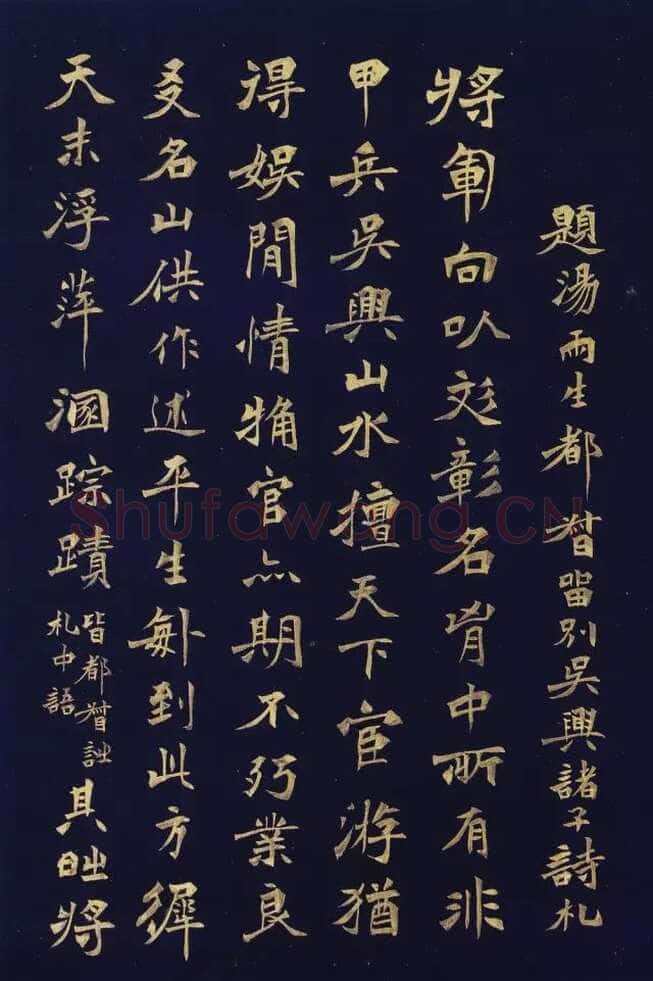 題湯雨生都督留別吳興諸子詩札
將軍向㕥彣彰名胷中所有非
甲兵吳興山水擅天下宦游猶
得娛閒情觕官亦期不㱙業良
友名山供作述平生到此方徲
天末浮萍溷踪蹟
皆都督詩
札中語
其時將
Shufawang.CN